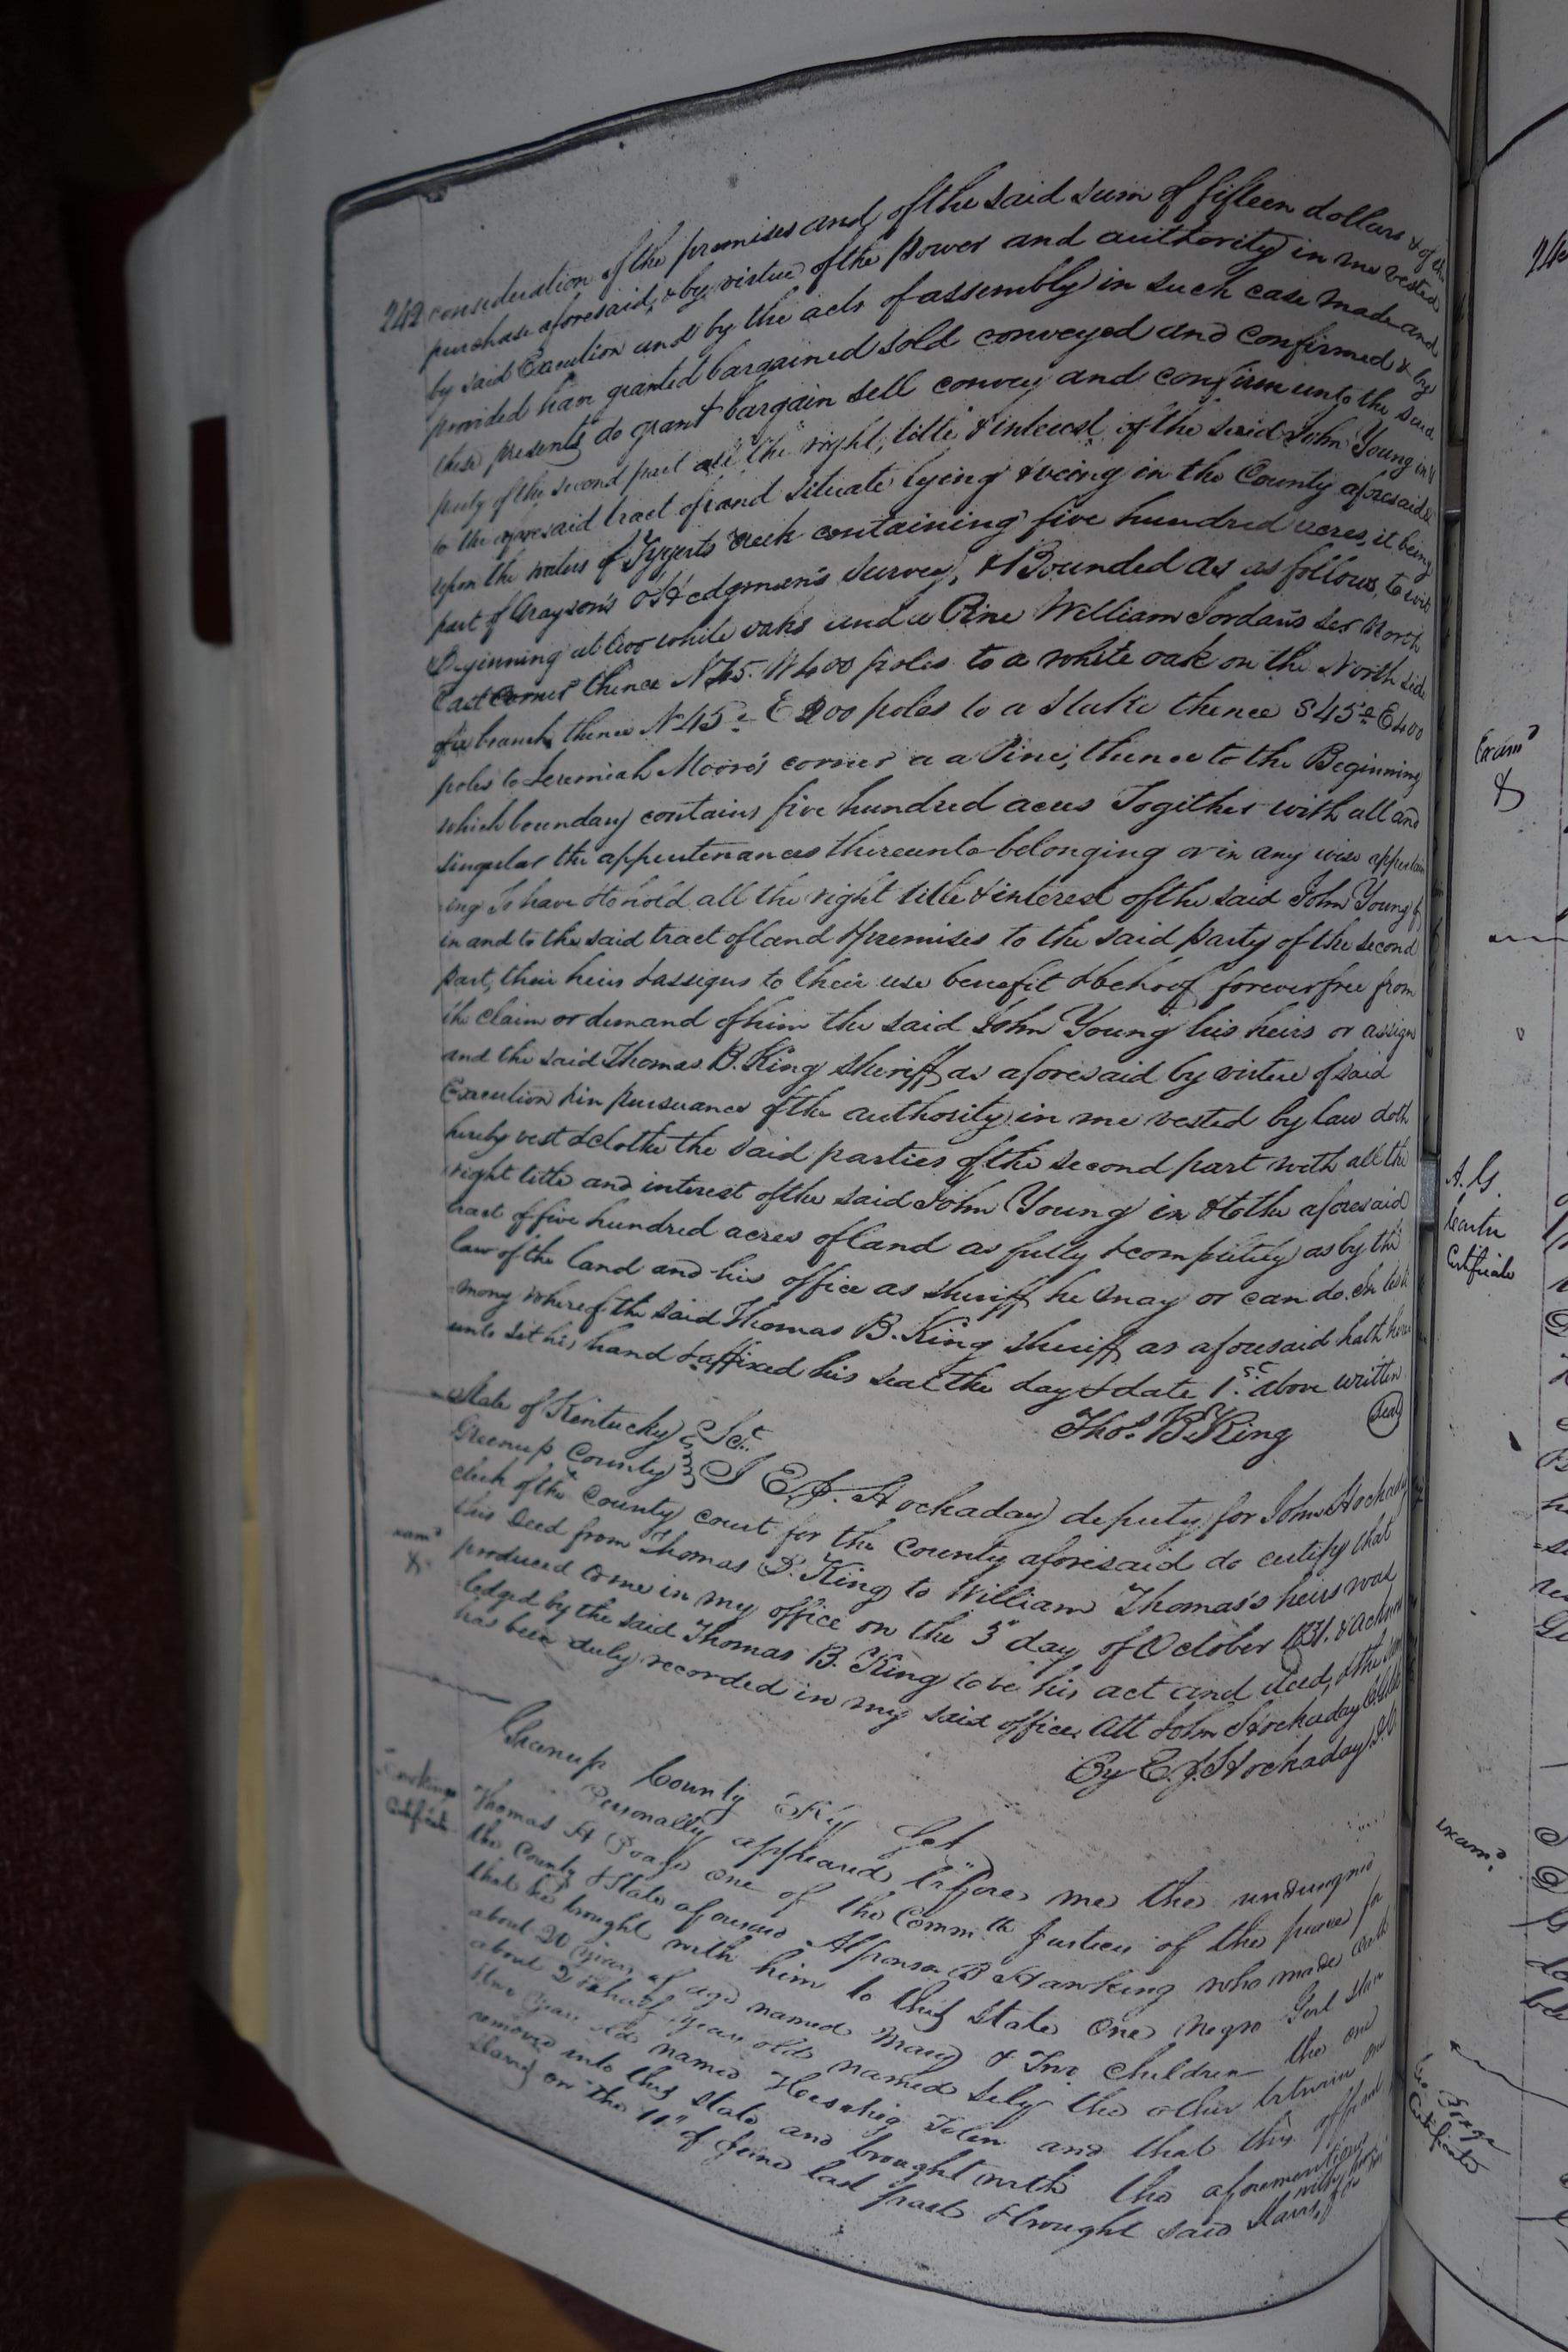 242 consideration of the premises and of the said sum of fifteen dollars & of the
purchase aforesaid, & by virtue of the power and authority in me vested
by said Execution and by the acts of assembly in such case made and
provided have granted bargained sold conveyed and confirmed & by
these presents do grant bargain sell convey and confirm unto the said
party of the second part all the right, title & interest of the said John Young in &
to the aforesaid tract of land situate lying & being in the County aforesaid
upon the waters of Tygerts Creek containing five hundred acres, it being
part of Grayson's & Hedgman's Survey, & Bounded as as follows, to wit
Beginning at two white oaks and a Pine William Jordan's Ser North
East Corner thence N45. W400 poles to a white oak on the North side
of a branch thence N45° E 200 poles to a Stake thence S45° E400
poles to Jeremiah Moore's corner a a Pine, thence to the Beginning
which boundary contains five hundred acres Together with all and
singular the appurtenances thereunto belonging or in any wise appertain
ing To have & to hold all the right title & interest of the said John Young of
in and to the said tract of land & premises to the said party of the second
part, their heirs & assigns to their use benefit & behoof forever free from
the claim or demand of him the said John Young his heirs or assigns
and the said Thomas B. King sheriff as aforesaid by virtue of said
Execution & in pursuance of the authority in me vested by law doth
hereby vest & clothe the said parties of the second part with all the
right title and interest of the said John Young in & to the aforesaid
tract of five hundred acres of land as fully & completely as by the
law of the land and his office as sheriff he may or can do. In testi
mony whereof the said Thomas B. King sheriff as aforesaid hath here
unto set his hand & affixed his seal the day & date 1st. above written
Thos. B. King (Seal)
State of Kentucky } Sct.
Greenup County } I E. J. Hockaday deputy for John Hockaday
clerk of the County court for the County aforesaid do certify that
this Deed from Thomas B. King to William Thomas's heirs was
produced to me in my office on the 3" day of October 1831. & acknow
ledged by the said Thomas B. King to be his act and deed, & the same
has been duly recorded in my said office. Att John Hockaday
By E. J. Hockaday D.C.
Exam^d
&
Greenup County & Ky Sct
Personally appeared before me the undersigned
Thomas H Poage one of the Comm^th Justices of the peace for
the County & State aforesaid Alfonso B Hawkins who made oath
that he brought with him to this State one Negro Girl Slave
about 20 years of age named Mary & Two Children the one
about 2 & half years old named Sely the other between one
& two years old named Hesekia Tolen and that this
removed into this State and brought with the aforementioned
Slaves on the 11" of June last past & brought said Slaves with him
Hawkins
Certificate
Exam^d
&
A. G.
Certificate
Exam^d
Poage
Certificate